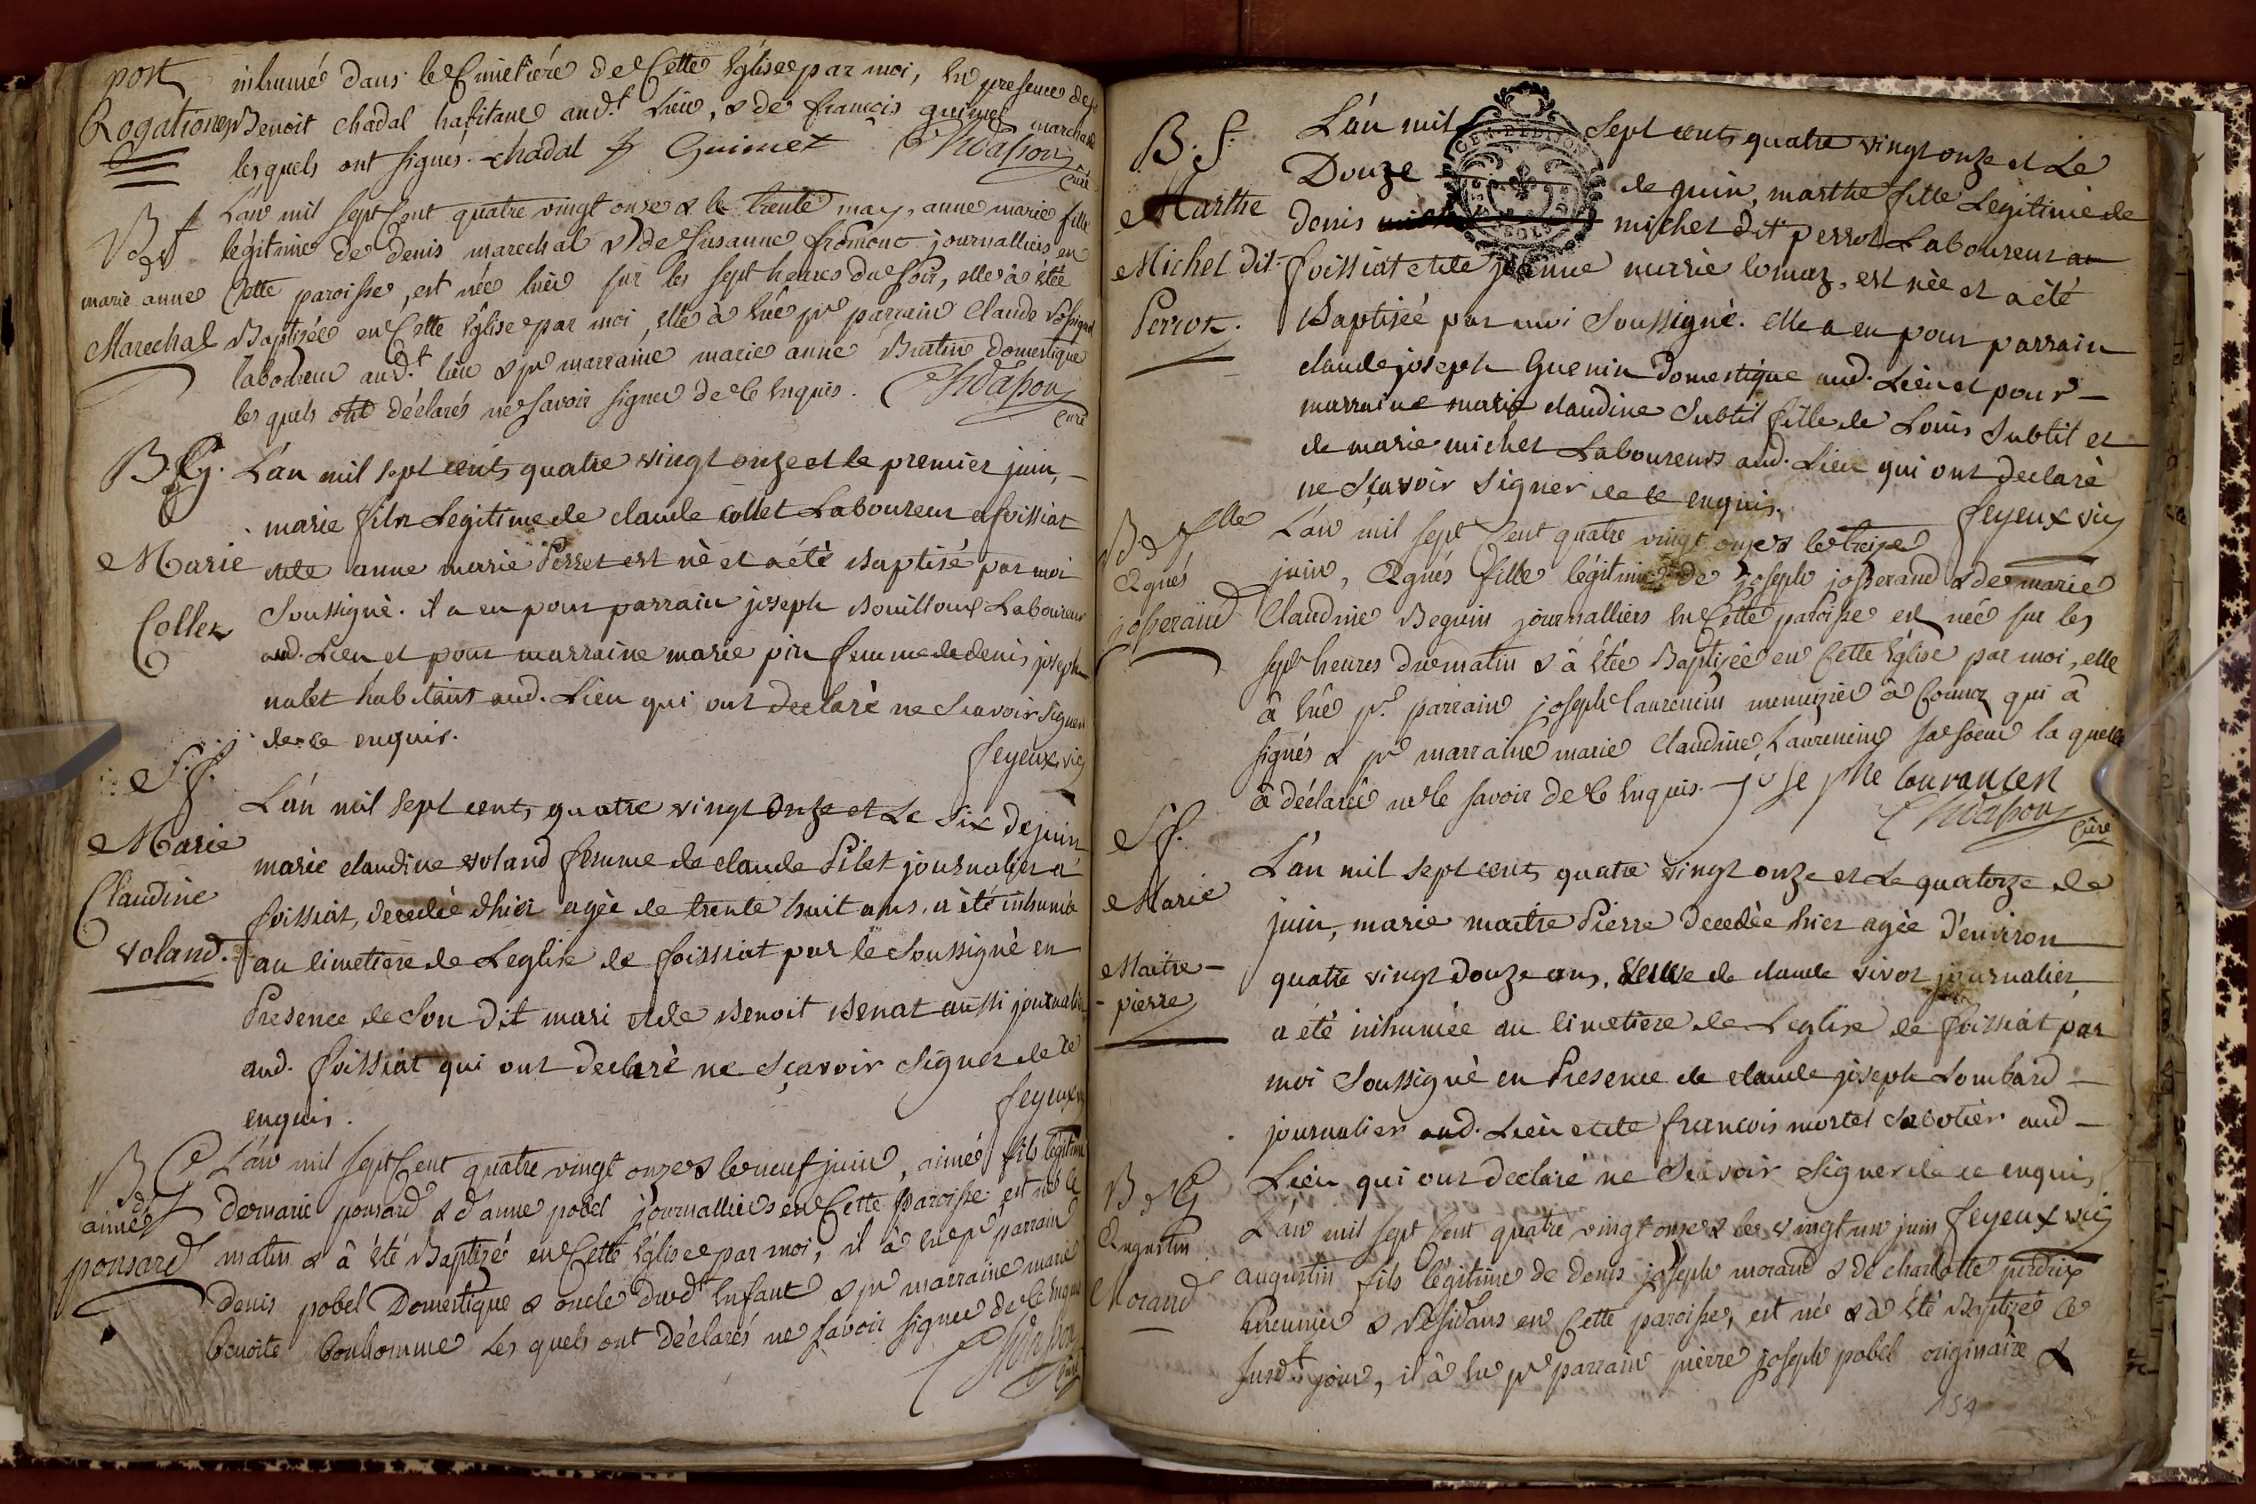 post
Rogationes
inhumé dans le Cimetiére de Cette Église par moi, en presence de
Benoit chadal habitant aud.t Lieu, & de françois guimet marchand
lesquels ont signés. chadal f Guimet
Curé
B d f
marie anne
Marechal
L'an mil sept Cent quatre vingt onze & le trente may, anne marie fille
légitime de denis marechal & de susanne fromont journalliers en
Cette paroisse, est née hier sur les sept heures du soir, elle à étée
Baptisée en Cette Église par moi, elle à hue pr parrain Claude
laboureur aud.t lieu & pr marraine marie anne Burtin domestique
les quels ont déclarés ne savoir signer de ce enquis.
Curé
B. G.
Marie
Collet
L'an mil sept cents quatre vingt onze et le premier juin,
marie fils Legitime de claude collet Laboureur a foissiat
et de anne marie Perret est nè et a été Baptisé par moi
Soussigné. il a eu pour parrain joseph Bouilloux Laboureur
aud. Lieu et pour marraine marie pin femme de denis joseph
nalet habitans aud. Lieu qui ont declarè ne Scavoir Signer
de ce enquis.
feyeux vic
S. f.
Marie
Claudine
voland.
L'an mil sept cents quatre vingt onze et Le Six de juin
marie claudine voland femme de claude Pilet journalier a
foissiat, decedée d'hier agèe de trente huit ans, a été inhumée
au cimetiere de Leglise de foissiat par le Soussigné en
Presence de Son dit mari et de Benoit Benat aussi journalier
aud. foissiat qui ont declarè ne Sçavoir Signer de ce
enquis.
feyeux
B d G
aimé
ponsard
L'an mil sept Cent quatre vingt onze & le neuf juin, aimé fils légitime
de marie ponsard & d'anne pobel journalliers en Cette paroisse est né le
matin & à été Baptizé en Cette Église par moi, il à hu pr parrain
denis pobel Domestique & oncle dud.t Enfant & pr marraine marie
benoite bonhomme Les quels ont déclarés ne savoir signer de ce enquis
Curé
B. f.
Marthe
Michel dit
Perrot.
L'an mil sept cents quatre vingt onze et Le
Douze de juin, marthe fille Legitime de
denis michel dit perrot Laboureur au
foissiat et de jeanne marie lomaz, est nèe et a été
Baptiséé par moi Soussigné. elle a eu pour parrain
claude joseph Guenin domestique aud. Lieu et pour
marraine marie claudine Subtil fille de Louis Subtil et
de marie michel Laboureurs aud. Lieu qui ont declarè
ne Sçavoir Signer de ce enquis.
feyeux vic
B d f lle
Agnés
josserand
L'an mil sept Cent quatre vingt onze & le treize
juin, Agnés fille légitime de joseph josserand & de marie
Claudine Beguin journalliers en Cette paroisse est née sur les
sept heures du matin & à étée Baptizée en Cette Église par moi, elle
à hue pr. parrain joseph laurencin menuizier à qui à
signés & pr marraine marie Claudine Laurencin sa soeur la quelle
à déclarée ne le savoir de ce enquis. josephe lourancen
Curé
S f.
Marie
Maitre-
-pierre
L'an mil sept cents quatre vingt onze et Le quatorze de
juin, marie maitre Pierre decedée hier agée d'environ
quatre vingt douze ans, veuve de claude vivot journalier
a été inhumée au cimetiere de Leglise de foissiat par
moi Soussigné en Presence de claude joseph Lombard
journalier aud. Lieu et de francois mortel Sabotier aud
Lieu qui ont declaré ne Scavoir Signer de ce enquis
feyeux vic
B d G
Augustin
Morand
L'an mil sept Cent quatre vingt onze & les vingt un juin
augustin fils légitime de denis joseph morand & de charlotte perdrix
& résidans en Cette paroisse, est né & à été Baptizé Ce
susd.t jour, il à hu pr parrain pierre joseph pobel originaire &
154